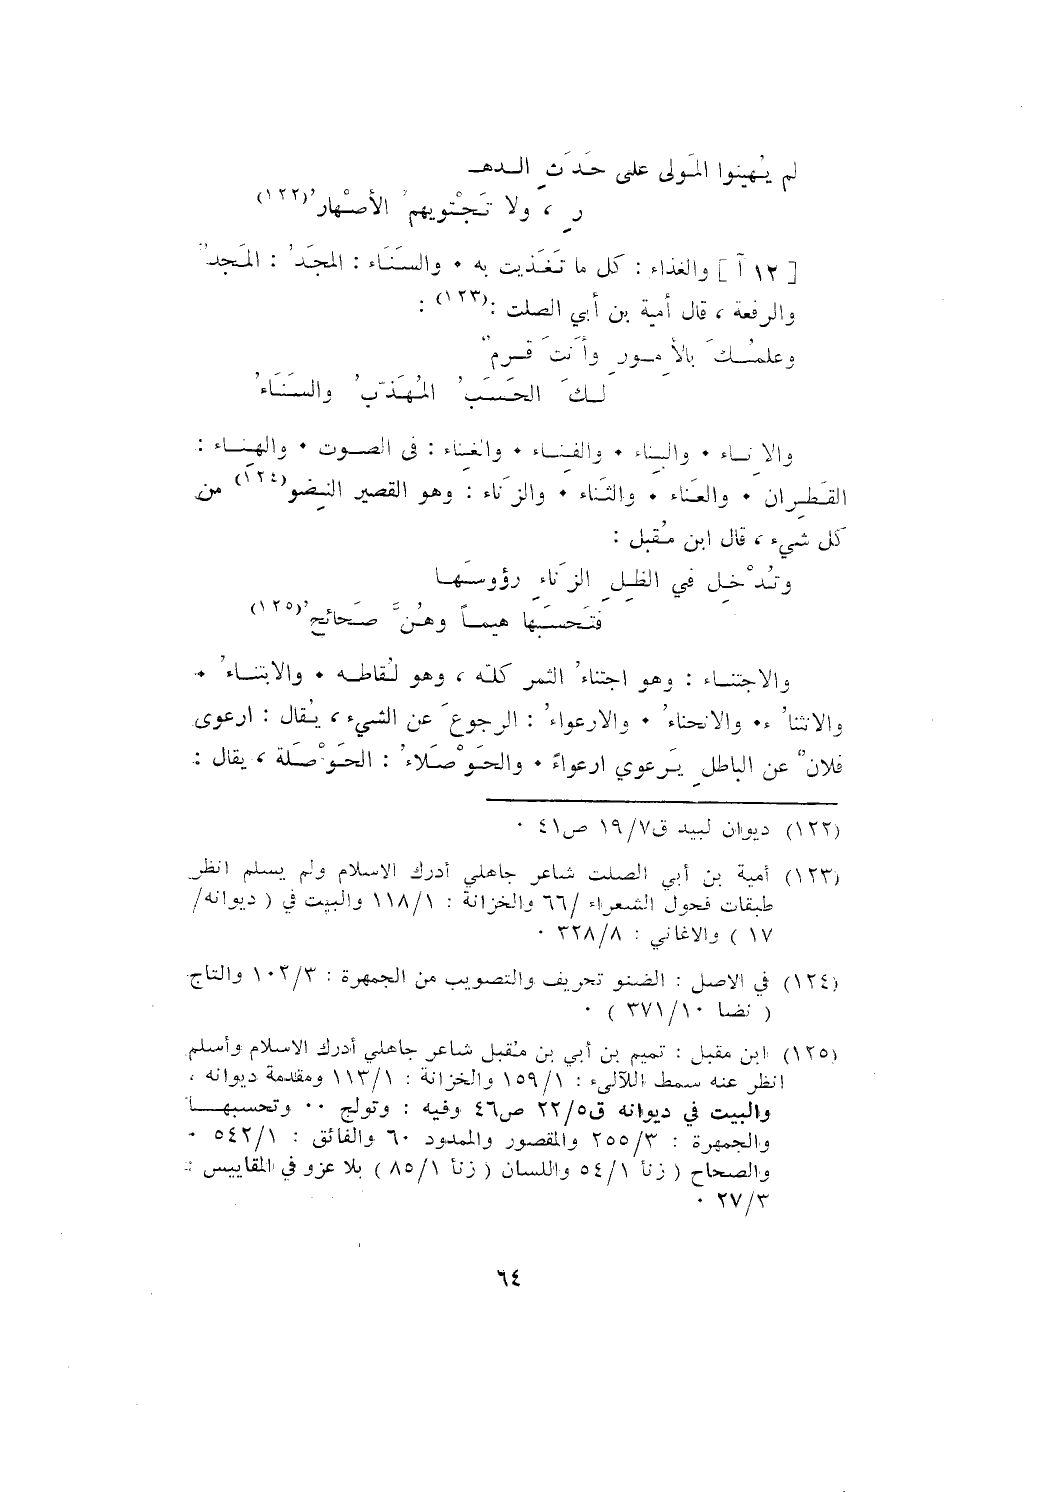 لم يُهينوا المَولى على حَدَثِ الـدهـ
رِ ، ولا تَجْتويهمُ الأصْهارُ(١٢٢)
[ ١٢ آ ] والغذاء : كل ما تَغَذيت به ٠ والسَنَاء : المجَدُ : المَجدُ
والرفعة ، قال أمية بن أبي الصلت :(١٢٣) :
وعلمُـكَ بالأمـورِ وأنتَ قـرمٌ
لـكَ الحَسَبُ المُهَذّبُ والسَنَاءُ
والانـاء ٠ والبِناء ٠ والفِنـاء ٠ والغِناء : في الصـوت ٠ والهِنـاء :
القَطِران ٠ والعَناء ٠ والثَناء ٠ والزَناء : وهو القصير النِضو(١٢٤) من
كل شيء ، قال ابن مُقبل :
وتُدْخِل في الظِلِ الزَناءِ رؤوسَهـا
فتَحسَبَها هيمـاً وهُنَّ صَحائحُ(١٢٥)
والاجتنـاء : وهو اجتناءُ الثمر كله ، وهو لُقاطـه ٠ والابتنـاءُ ٠
والانثناُء ٠ والانحناءُ ٠ والارعواءُ : الرجوعَ عن الشيء ، يُقال : ارعوى
فلانٌ عن الباطلِ يَرعوي ارعواءً ٠ والحَوْصَلاءُ : الحَوْصَلة ، يقال :
(١٢٢) ديوان لبيد ق١٩/٧ ص٤١ ٠
(١٢٣) أمية بن أبي الصلت شاعر جاهلي أدرك الاسلام ولم يسلم انظر
طبقات فحول الشعراء /٦٦ والخزانة : ١١٨/١ والبيت في ( ديوانه/
١٧ ) والاغاني : ٣٢٨/٨ ٠
(١٢٤) في الاصل : الضنو تحريف والتصويب من الجمهرة : ١٠٢/٣ والتاج
( نضا ٣٧١/١٠ ) ٠
(١٢٥) ابن مقبل : تميم بن أبي بن مُقبل شاعر جاهلي أدرك الاسلام وأسلم
انظر عنه سمط اللآلىء : ١٥٩/١ والخزانة : ١١٣/١ ومقدمة ديوانه ،
والبيت في ديوانه ق٢٢/٥ ص٤٦ وفيه : وتولج ٠٠ وتحسبهـا
والجمهرة : ٢٥٥/٣ والمقصور والممدود ٦٠ والفائق : ٥٤٢/١ ٠
والصحاح ( زنأ ٥٤/١ واللسان ( زنأ ٨٥/١ ) بلا عزو في المقاييس :
٢٧/٣ ٠
٦٤